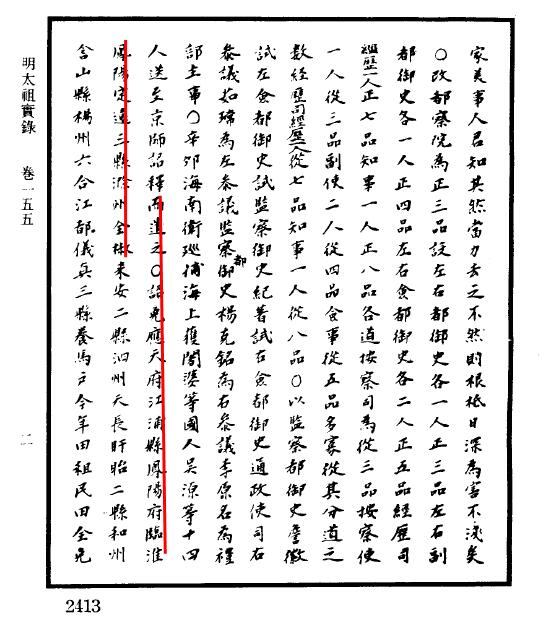 家美事人君知其然當力去之不然則根柢日深為害不淺矣
○改都察院為正三品設左右都御史各一人正三品左右副
都御史各一人正四品左右僉都御史各二人正五品經歷司
經歷一人正七品知事一人正八品各道按察司為從三品按察使
一人從三品副使二人從四品僉事從五品多寡從其分道之
數經歷司經歷一人從七品知事一人從八品○以監察都御史詹徽
試左僉都御史試監察御史紀著試右僉都御史通政使司右
參議茹瑺為左參議監察都御史楊克銘為右參議李原名為禮
部主事○辛卯海南衛巡捕海上獲闍婆等國人吳源等十四
人送至京師詔釋而遣之○詔免應天府江浦縣鳳陽府臨淮
鳳陽定遠三縣滁州全椒來安二縣泗州天長盱眙二縣和州
含山縣楊州六合江都儀真三縣養馬戶今年田租民田全免
明太祖實錄 卷一五五 二
2413